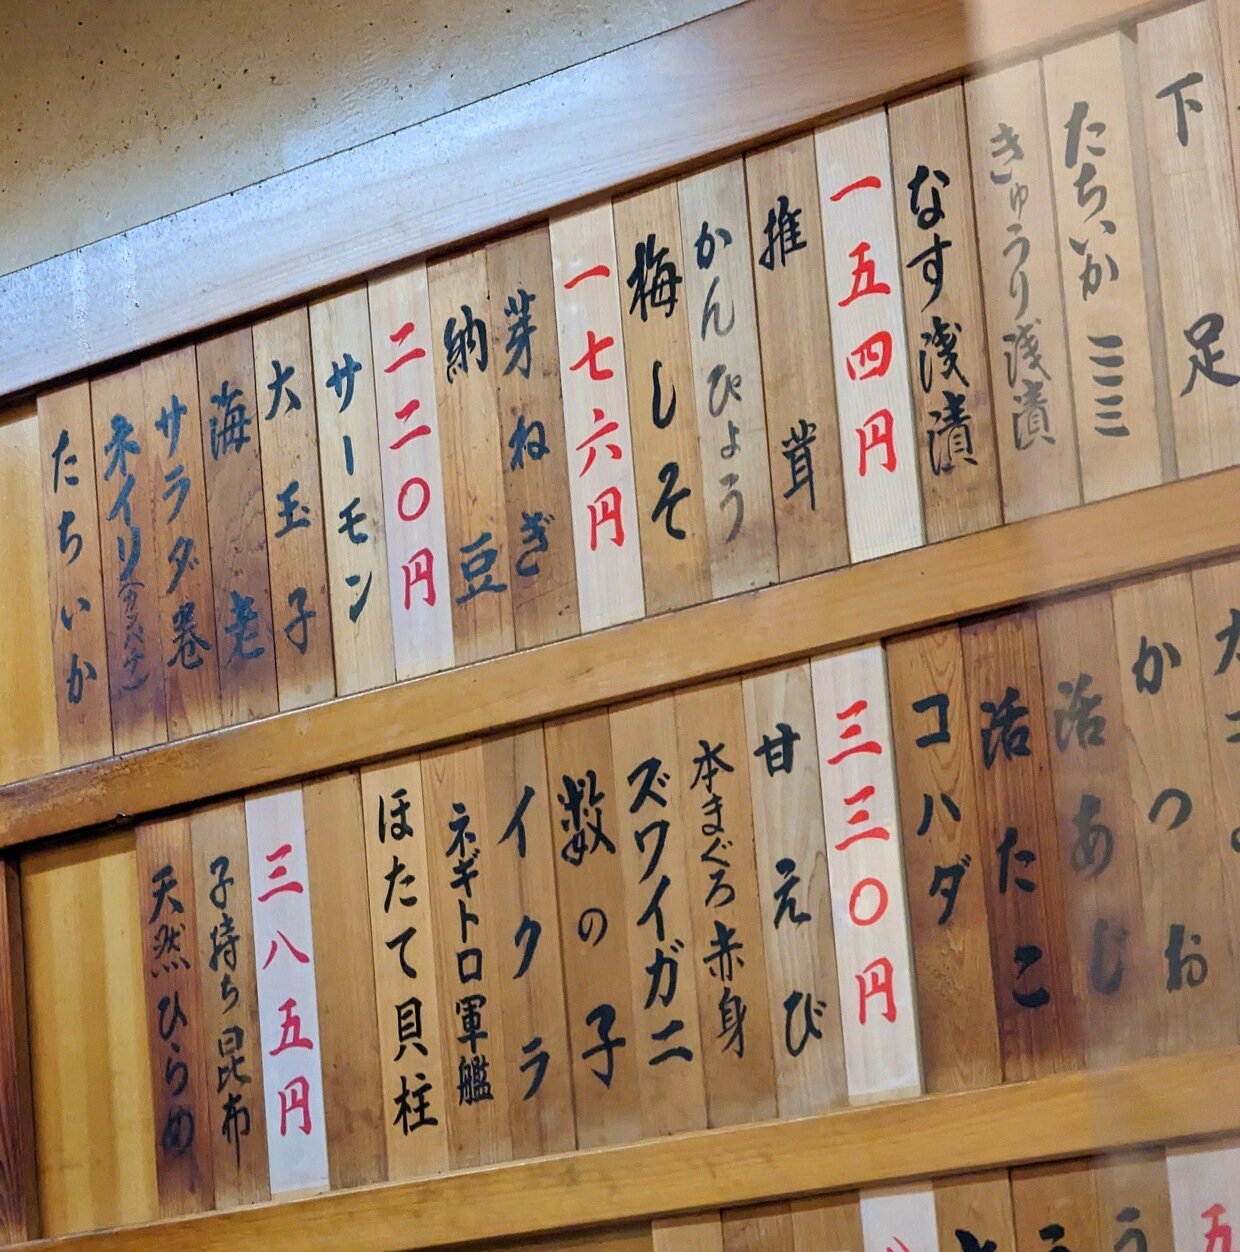 下足
たちいか ミミ
きゅうり浅漬
なす浅漬
一五四円
推茸
かんぴょう
梅しそ
一七六円
芽ねぎ
納豆
二二〇円
サーモン
大玉子
海老
サラダ巻
ネイリ(カンパチ)
たちいか
かつお
活あじ
活たこ
コハダ
三三〇円
甘えび
本まぐろ赤身
ズワイガニ
数の子
イクラ
ネギトロ軍艦
ほたて貝柱
三八五円
子持ち昆布
天然ひらめ